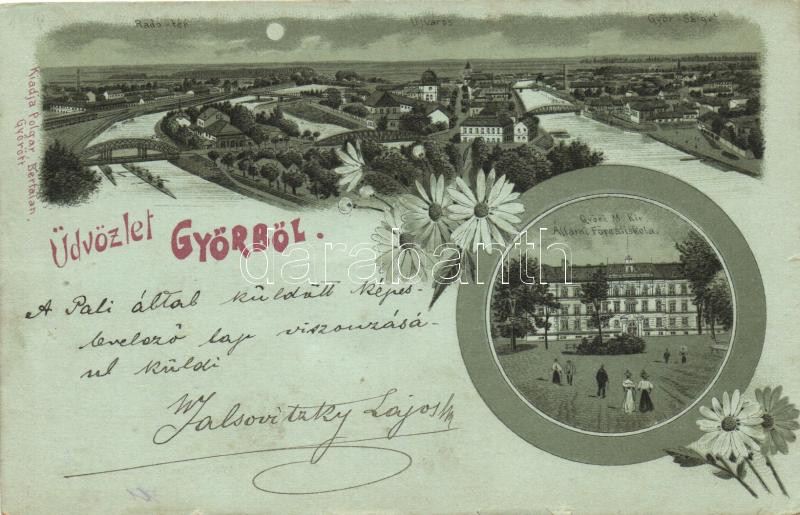 Radó-tér
Újváros
Győr-Sziget
Kiadja Polgár Bertalan,
Győrött.
Üdvözlet GYŐRBŐL.
Győri M. Kir.
Állami Főreáliskola.
darabanth
A Pali által küldött képes-
levelező lap viszonzásá-
ul küldi
Jalsovitzky Lajos